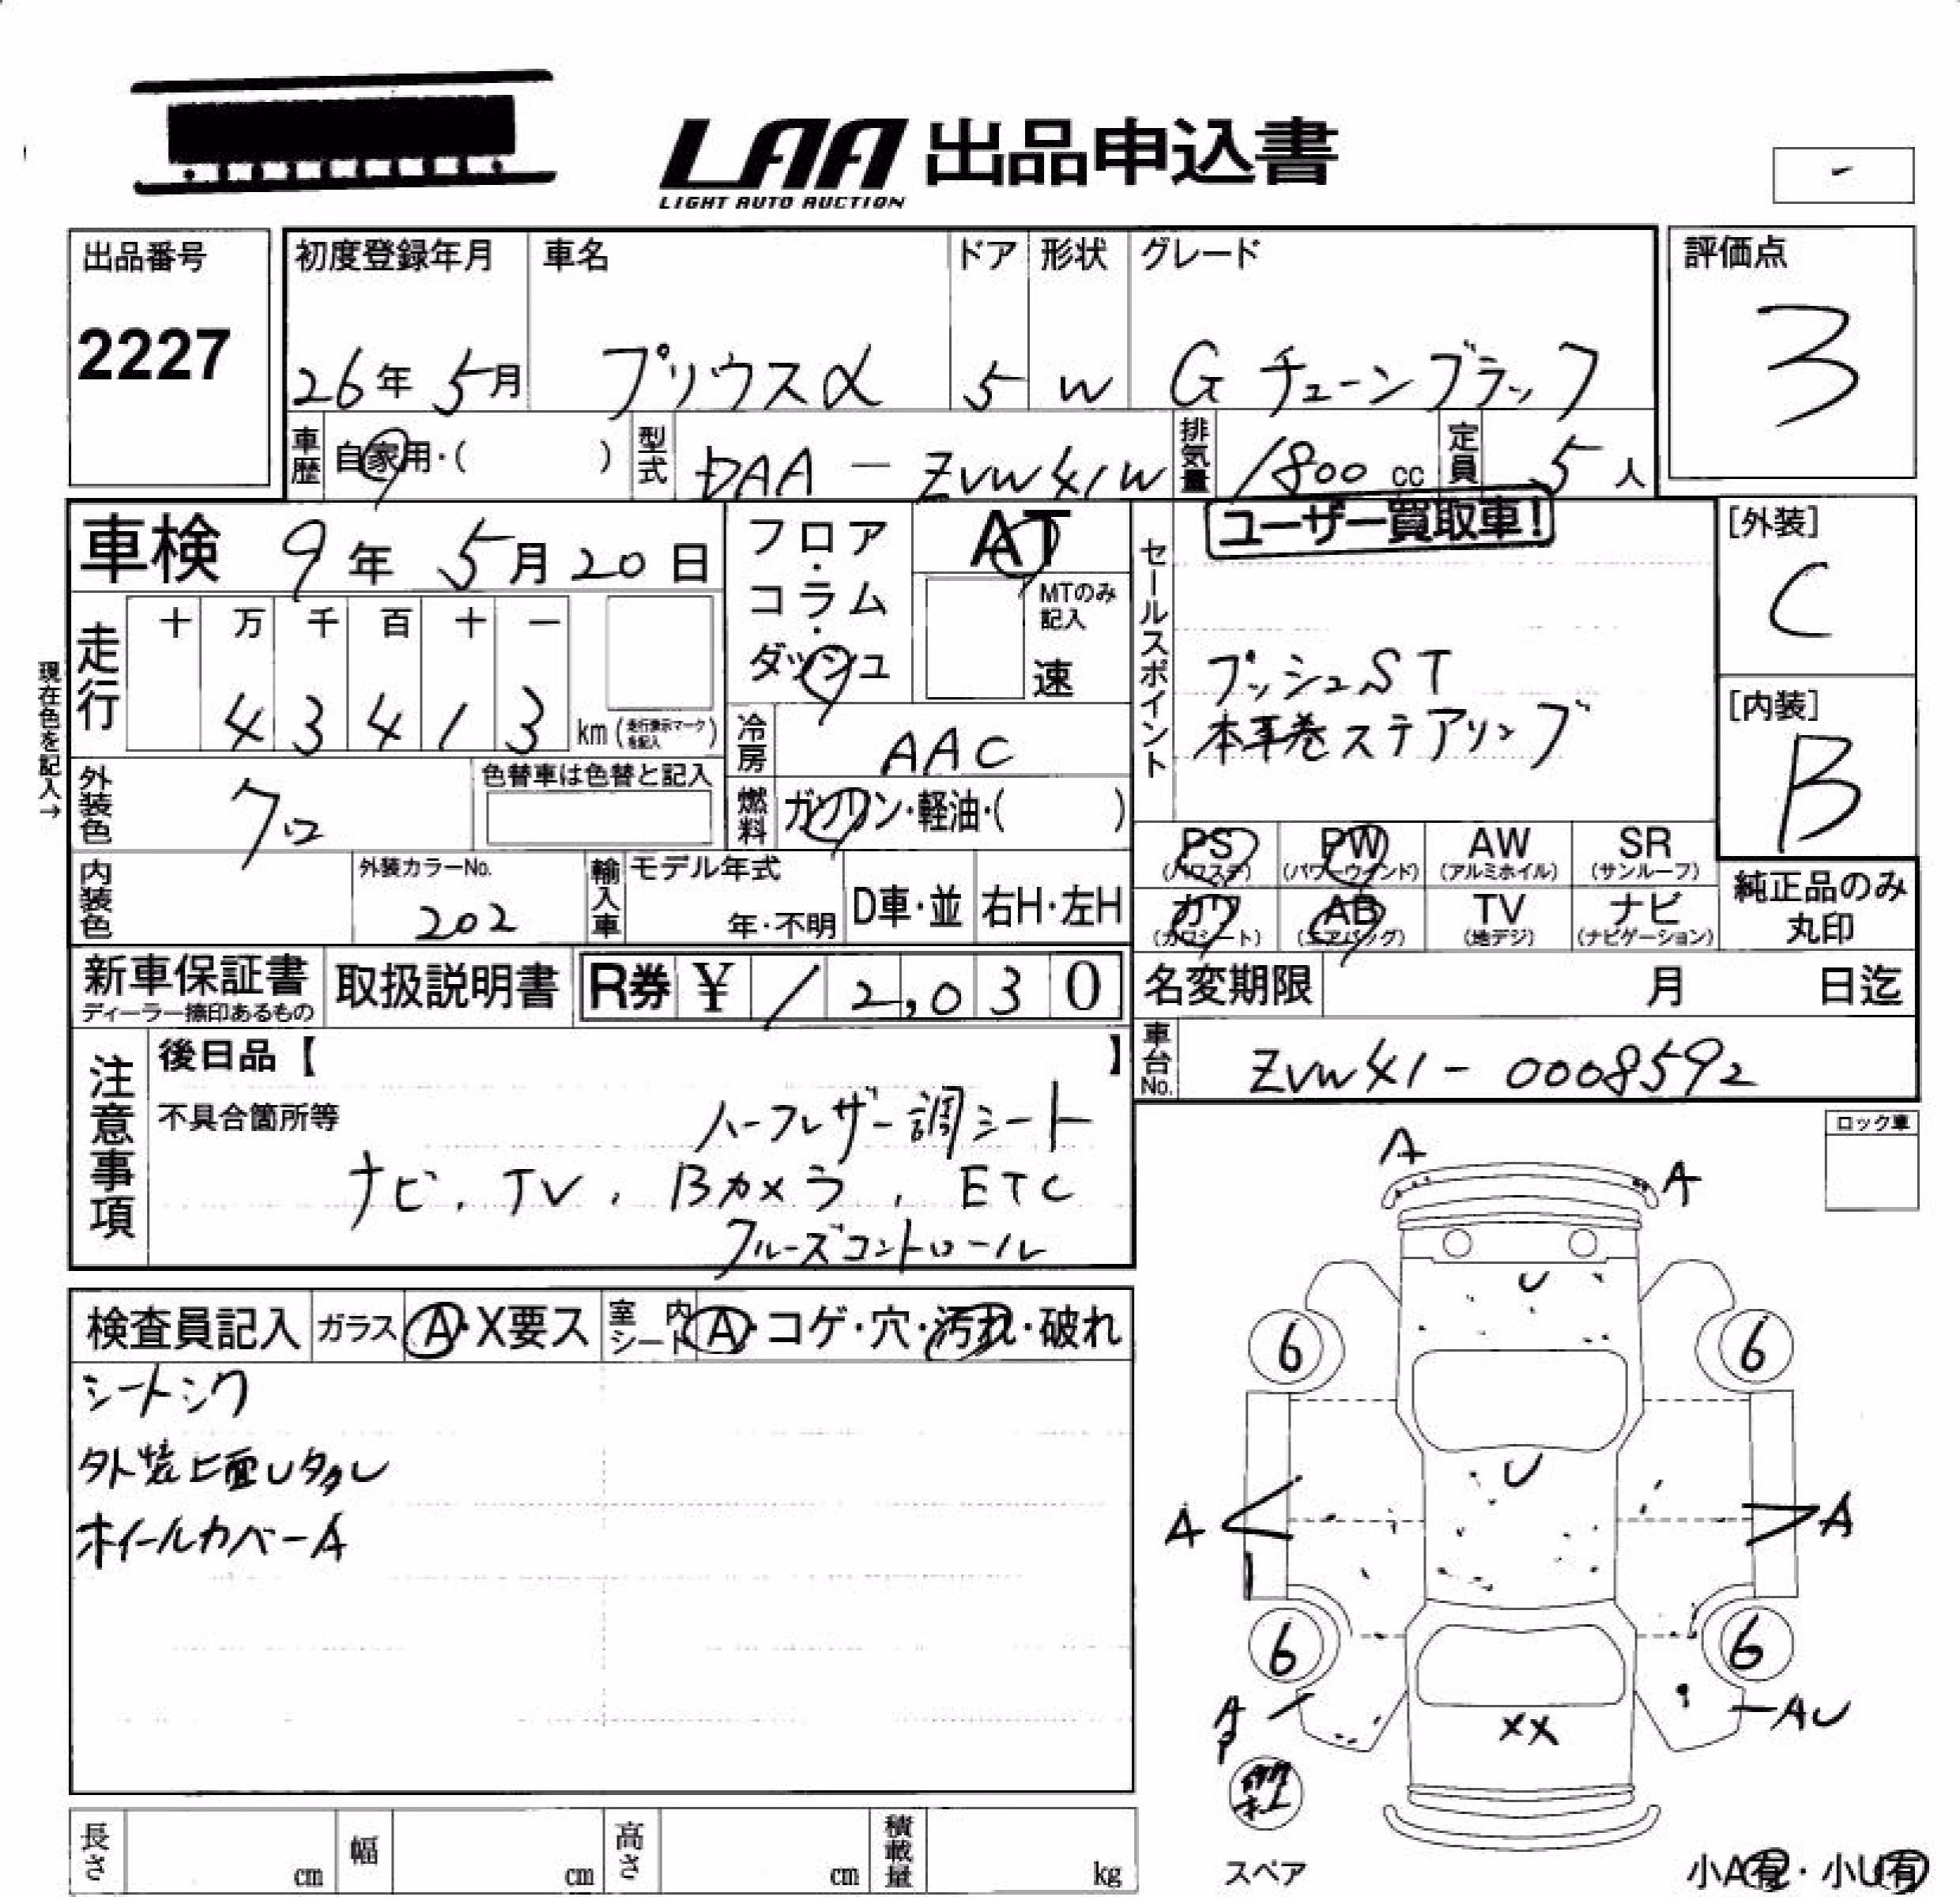 LAA 出品申込書
LIGHT AUTO AUCTION
出品番号
2227
初度登録年月 車名 ドア 形状 グレード
26年 5月 プリウスα 5 W G チューンブラック
評価点
3
車歴 自家用・( ) 型式 DAA-ZVW41W 排気量 1800 cc 定員 5 人
車検 9年 5月20日
フロア・コラム・ダッシュ
AT
MTのみ記入
速
セールスポイント
ユーザー買取車!
プッシュST
本革巻ステアリング
[外装]
C
[内装]
B
現在色を記入→
走行
十 万 千 百 十 一
4 3 4 1 3 km (走行表示マークを記入)
冷房 AAC
外装色 クロ
色替車は色替と記入
燃料 ガソリン・軽油・( )
PS AW SR
PW
(パワステ) (パワーウインド) (アルミホイル) (サンルーフ)
カワ AB TV ナビ
(カワシート) (エアバッグ) (地デジ) (ナビゲーション)
純正品のみ丸印
内装色
外装カラーNo.
202
輸入車 モデル年式
年・不明 D車・並 右H・左H
新車保証書
ディーラー捺印あるもの
取扱説明書
R券 ¥ 12,030
名変期限 月 日迄
車台No. ZVW41-0008592
注意事項
後日品【 】
不具合箇所等
ハーフレザー調シート
ナビ、TV、Bカメラ、ETC
クルーズコントロール
ロック車
検査員記入 ガラス A・X要ス 室内シート A・コゲ・穴・汚れ・破れ
シートシワ
外装上面Uタタレ
ホイールカバーA
A
A
U
6 6
U
A A
6 6
A
P
AU
XX
スペア
小A有・小U有
長さ cm 幅 cm 高さ cm 積載量 kg